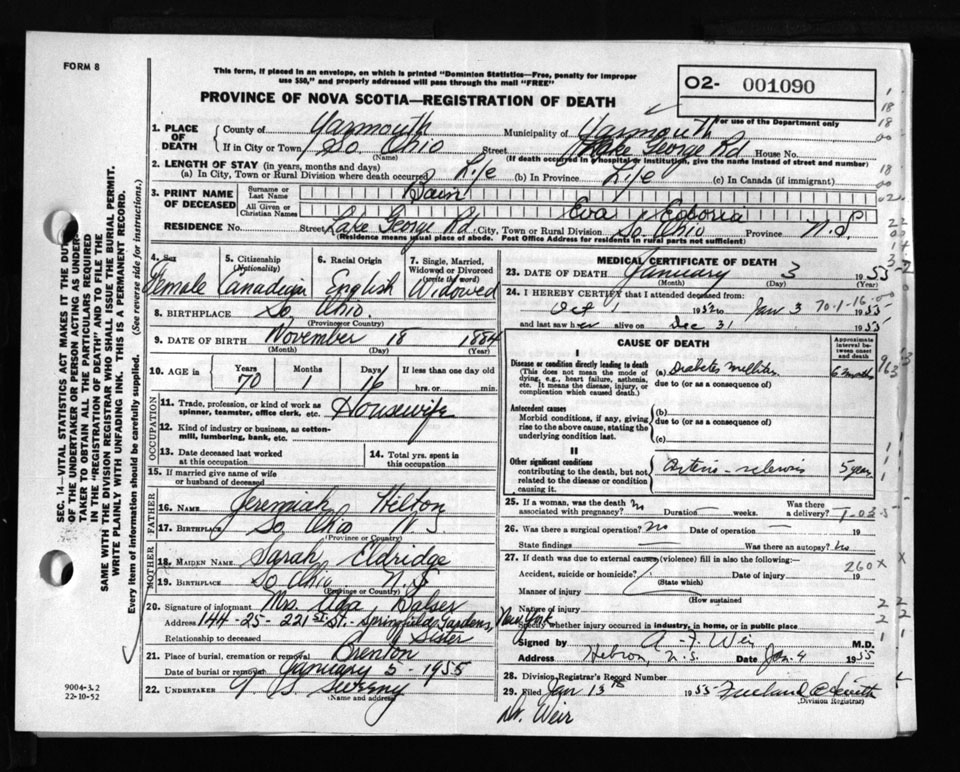 FORM 8
This form, if placed in an envelope, on which is printed "Dominion Statistics—Free, penalty for improper
use $50," and properly addressed will pass through the mail "FREE"
PROVINCE OF NOVA SCOTIA—REGISTRATION OF DEATH
O2- 001090
For use of the Department only
1. PLACE OF DEATH
County of Yarmouth Municipality of Yarmouth
If in City or Town So Ohio Street Lake George Rd House No.
(Name) (If death occurred in a hospital or institution, give the name instead of street and number)
2. LENGTH OF STAY (in years, months and days)
(a) In City, Town or Rural Division where death occurred Life (b) In Province Life (c) In Canada (if immigrant)
3. PRINT NAME OF DECEASED
Surname or Last Name Bain
All Given or Christian Names Eva
RESIDENCE No. Street Lake George Rd. City, Town or Rural Division So. Ohio Province N.S.
(Residence means usual place of abode. Post Office Address for residents in rural parts not sufficient)
4. Sex Female
5. Citizenship (Nationality) Canadian
6. Racial Origin English
7. Single, Married, Widowed or Divorced (write the word) Widowed
8. BIRTHPLACE So Ohio.
(Province or Country)
9. DATE OF BIRTH November 18 1884
(Month) (Day) (Year)
10. AGE in Years 70 Months 1 Days 16 If less than one day
hrs. or min.
OCCUPATION
11. Trade, profession, or kind of work as spinner, teamster, office clerk, etc. Housewife
12. Kind of industry or business, as cotton-mill, lumbering, bank, etc.
13. Date deceased last worked at this occupation
14. Total yrs. spent in this occupation
15. If married give name of wife or husband of deceased
FATHER
16. NAME Jeremiah Hilton
17. BIRTHPLACE So Ohio N S
(Province or Country)
MOTHER
18. MAIDEN NAME Sarah Eldridge
19. BIRTHPLACE So Ohio N.S
(Province or Country)
20. Signature of informant Mrs. Ada
Address 144-25-221 St St.- Springfield Gardens, New York
Relationship to deceased Sister
21. Place of burial, cremation or removal Brenton
Date of burial or removal January 5-1955
22. UNDERTAKER Sweeny
(Name and address)
MEDICAL CERTIFICATE OF DEATH
23. DATE OF DEATH January 3 1955
(Month) (Day) (Year)
24. I HEREBY CERTIFY that I attended deceased from:
Oct 1 to Jan 3 1955
70-1-16
and last saw her alive on Dec 31 19
CAUSE OF DEATH
Approximate interval between onset and death
I
Disease or condition directly leading to death
(This does not mean the mode of dying, e.g., heart failure, asthenia, etc. It means the disease, injury, or complication which caused death.)
(a) Diabetes mellitus 6 months
due to (or as a consequence of)
Antecedent causes
Morbid conditions, if any, giving rise to the above cause, stating the underlying condition last.
(b)
due to (or as a consequence of)
(c)
II
Other significant conditions
contributing to the death, but not related to the disease or condition causing it.
Arterio-sclerosis 5 years
25. If a woman, was the death associated with pregnancy? No Duration weeks. Was there a delivery?
26. Was there a surgical operation? No Date of operation 19
State findings Was there an autopsy? No
27. If death was due to external causes (violence) fill in also the following:
260 X
Accident, suicide or homicide? Date of injury 19
(State which)
Manner of injury
(How sustained)
Nature of injury
Specify whether injury occurred in industry, in home, or in public place
Signed by A. F. Weir M.D.
Address Hebron, N.S. Date Jan 4 1955
28. Division Registrar's Record Number
29. Filed Jan 13th 1955
(Division Registrar)
Dr. Weir
9004-3.2
22-10-52
SEC. 14—VITAL STATISTICS ACT MAKES IT THE DUTY
OF THE UNDERTAKER OR PERSON ACTING AS UNDER-
TAKER TO OBTAIN ALL THE PARTICULARS REQUIRED
IN THE "REGISTRATION OF DEATH" AND TO FILE THE
SAME WITH THE DIVISION REGISTRAR WHO SHALL ISSUE THE BURIAL PERMIT.
WRITE PLAINLY WITH UNFADING INK. THIS IS A PERMANENT RECORD.
Every item of information should be carefully supplied. (See reverse side for instructions.)